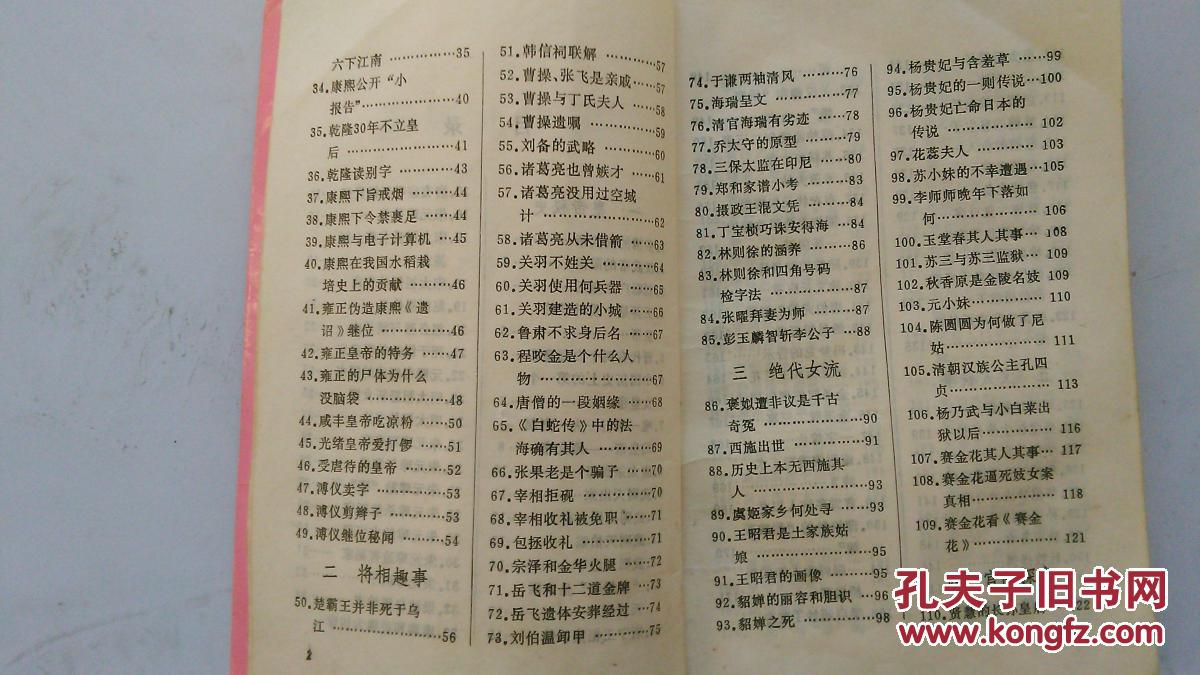 六下江南 ……………35
34.康熙公开“小
报告”……………40
35.乾隆30年不立皇
后 ………………41
36.乾隆读别字 ………43
37.康熙下旨戒烟 ……44
38.康熙下令禁裹足 …44
39.康熙与电子计算机 …45
40.康熙在我国水稻栽
培史上的贡献 ……46
41.雍正伪造康熙《遗
诏》继位 …………46
42.雍正皇帝的特务 ……47
43.雍正的尸体为什么
没脑袋 ……………48
44.咸丰皇帝吃凉粉 ……50
45.光绪皇帝爱打锣 ……51
46.受虐待的皇帝 ………52
47.溥仪卖字 ……………53
48.溥仪剪辫子 …………53
49.溥仪继位秘闻 ………54
二 将相趣事
50.楚霸王并非死于乌
江 …………………56
2
51.韩信祠联解 …………57
52.曹操、张飞是亲戚 …57
53.曹操与丁氏夫人 ……58
54.曹操遗嘱 ……………59
55.刘备的武略 …………60
56.诸葛亮也曾嫉才 ……61
57.诸葛亮没用过空城
计 …………………62
58.诸葛亮从未借箭 ……63
59.关羽不姓关 …………64
60.关羽使用何兵器 ……65
61.关羽建造的小城 ……66
62.鲁肃不求身后名 ……67
63.程咬金是个什么人
物 …………………67
64.唐僧的一段姻缘 ……68
65.《白蛇传》中的法
海确有其人 ………69
66.张果老是个骗子 ……70
67.宰相拒砚 ……………70
68.宰相收礼被免职 ……71
69.包拯收礼 ……………71
70.宗泽和金华火腿 ……72
71.岳飞和十二道金牌 …73
72.岳飞遗体安葬经过 …74
73.刘伯温卸甲 …………75
74.于谦两袖清风 ………76
75.海瑞呈文 ……………77
76.清官海瑞有劣迹 ……78
77.乔太守的原型 ………79
78.三保太监在印尼 ……80
79.郑和家谱小考 ………83
80.摄政王混文凭 ………84
81.丁宝桢巧诛安得海 …84
82.林则徐的涵养 ………86
83.林则徐和四角号码
检字法 ……………87
84.张曜拜妻为师 ………87
85.彭玉麟智斩李公子 …88
三 绝代女流
86.褒姒遭非议是千古
奇冤 ………………90
87.西施出世 ……………91
88.历史上本无西施其
人 …………………93
89.虞姬家乡何处寻 ……93
90.王昭君是土家族姑
娘 …………………95
91.王昭君的画像 ………95
92.貂婵的丽容和胆识 …96
93.貂婵之死 ……………98
94.杨贵妃与含羞草 ……99
95.杨贵妃的一则传说 …100
96.杨贵妃亡命日本的
传说 ………………102
97.花蕊夫人 ……………103
98.苏小妹的不幸遭遇 …105
99.李师师晚年下落如
何 …………………106
100.玉堂春其人其事 …108
101.苏三与苏三监狱 …109
102.秋香原是金陵名妓 109
103.元小妹 ……………110
104.陈圆圆为何做了尼
姑 …………………111
105.清朝汉族公主孔四
贞 …………………113
106.杨乃武与小白菜出
狱以后 ……………116
107.赛金花其人其事 …117
108.赛金花逼死妓女案
真相 ………………118
109.赛金花看《赛金
花》 ………………121
110.贤慧的长孙皇后 122
孔夫子旧书网
www.kongfz.com